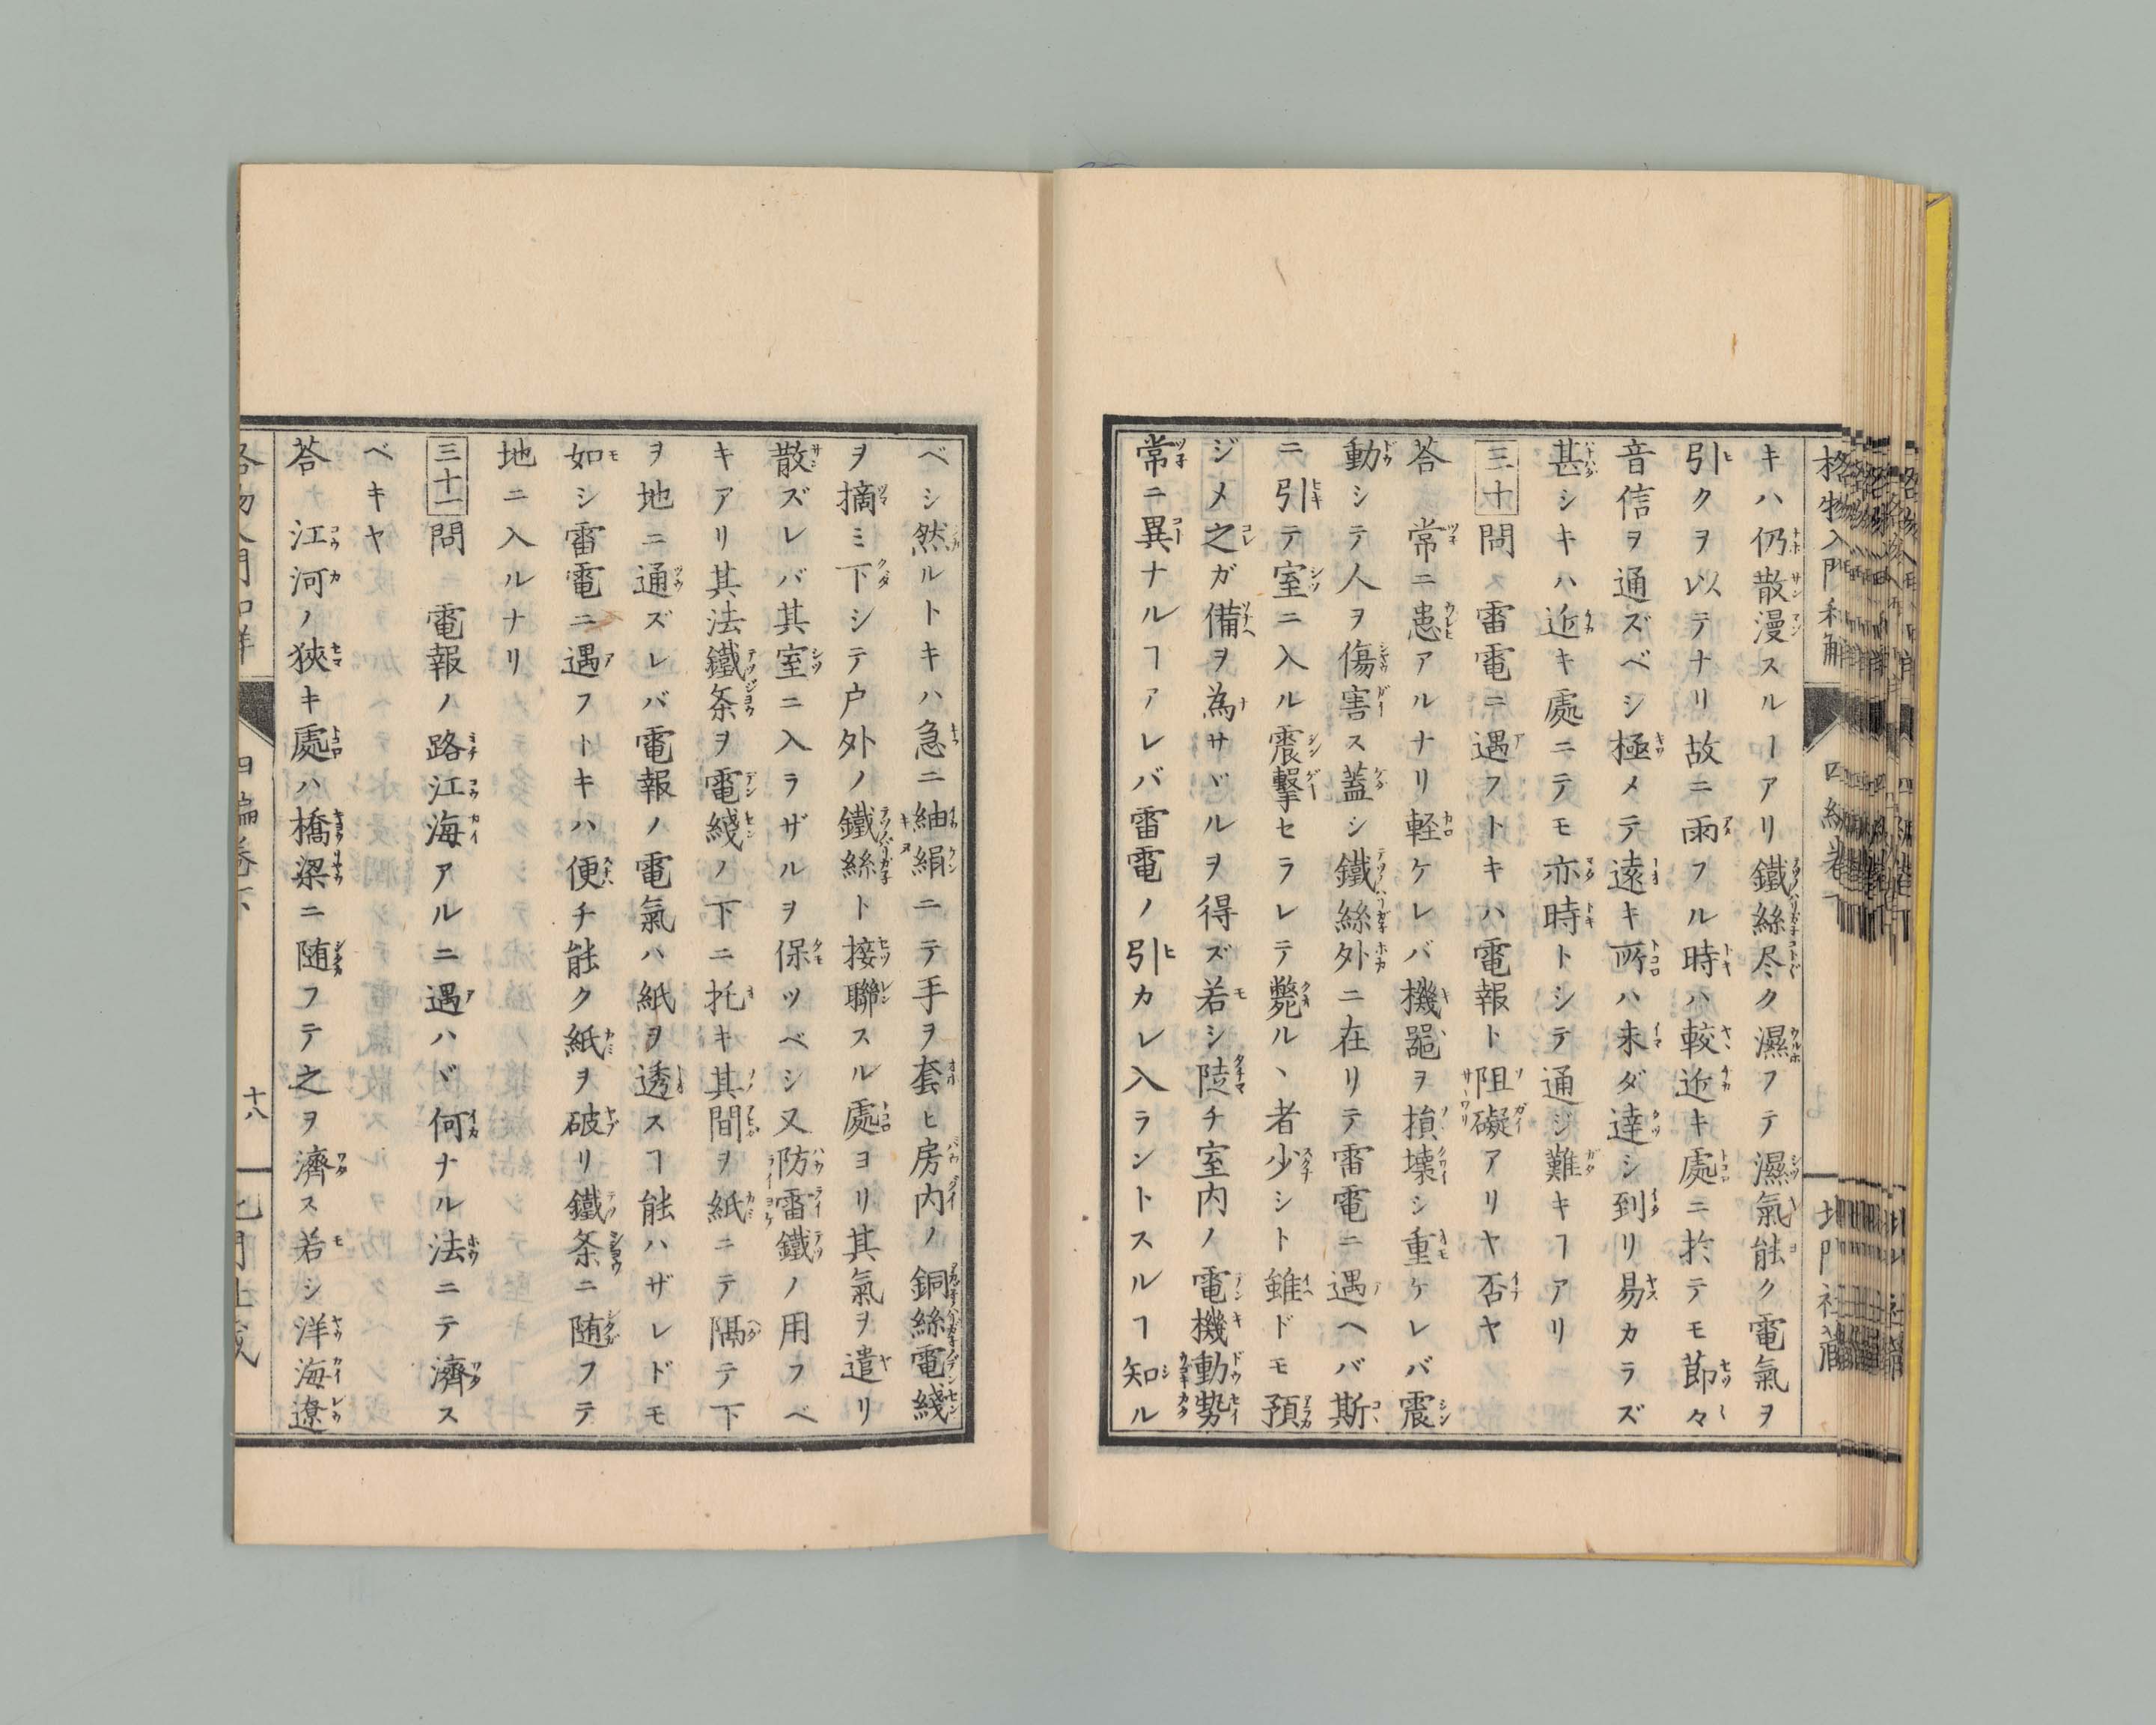 キハ仍散漫スルーアリ鐵絲尽ク濕フテ濕氣能ク電氣ヲ
引クヲ以テナリ故ニ雨フル時ハ較近キ處ニ於テモ節々
音信ヲ通ズベシ極メテ遠キ所ハ未ダ達シ到リ易カラズ
甚シキハ近キ處ニテモ亦時トシテ通ジ難キヿアリ
三十問 雷電ニ遇フトキハ電報ト阻礙アリヤ否ヤ
荅 常ニ患アルナリ軽ケレバ機噐ヲ損壊シ重ケレバ震
動シテ人ヲ傷害ス蓋シ鐵絲外ニ在リテ雷電ニ遇ヘバ斯
ニ引テ室ニ入ル震撃セラレテ斃ルヽ者少シト雖ドモ預
ジメ之ガ備ヲ為サヾルヲ得ズ若シ陡チ室内ノ電機動勢
常ニ異ナルヿアレバ雷電ノ引カレ入ラントスルヿ知ル
ベシ然ルトキハ急ニ紬絹ニテ手ヲ套ヒ房内ノ銅絲電綫
ヲ摘ミ下シテ户外ノ鐵絲ト接聯スル處ヨリ其氣ヲ遣リ
散ズレバ其室ニ入ラザルヲ保ツベシ又防雷鐵ノ用フベ
キアリ其法鐵条ヲ電綫ノ下ニ托キ其間ヲ紙ニテ隔テ下
ヲ地ニ通ズレバ電報ノ電氣ハ紙ヲ透スヿ能ハザレドモ
如シ雷電ニ遇フトキハ便チ能ク紙ヲ破リ鐵条ニ随フテ
地ニ入ルナリ
三十一問 電報ノ路江海アルニ遇ハヾ何ナル法ニテ濟ス
ベキヤ
荅 江河ノ狹キ處ハ橋梁ニ随フテ之ヲ濟ス若シ洋海遼
十八